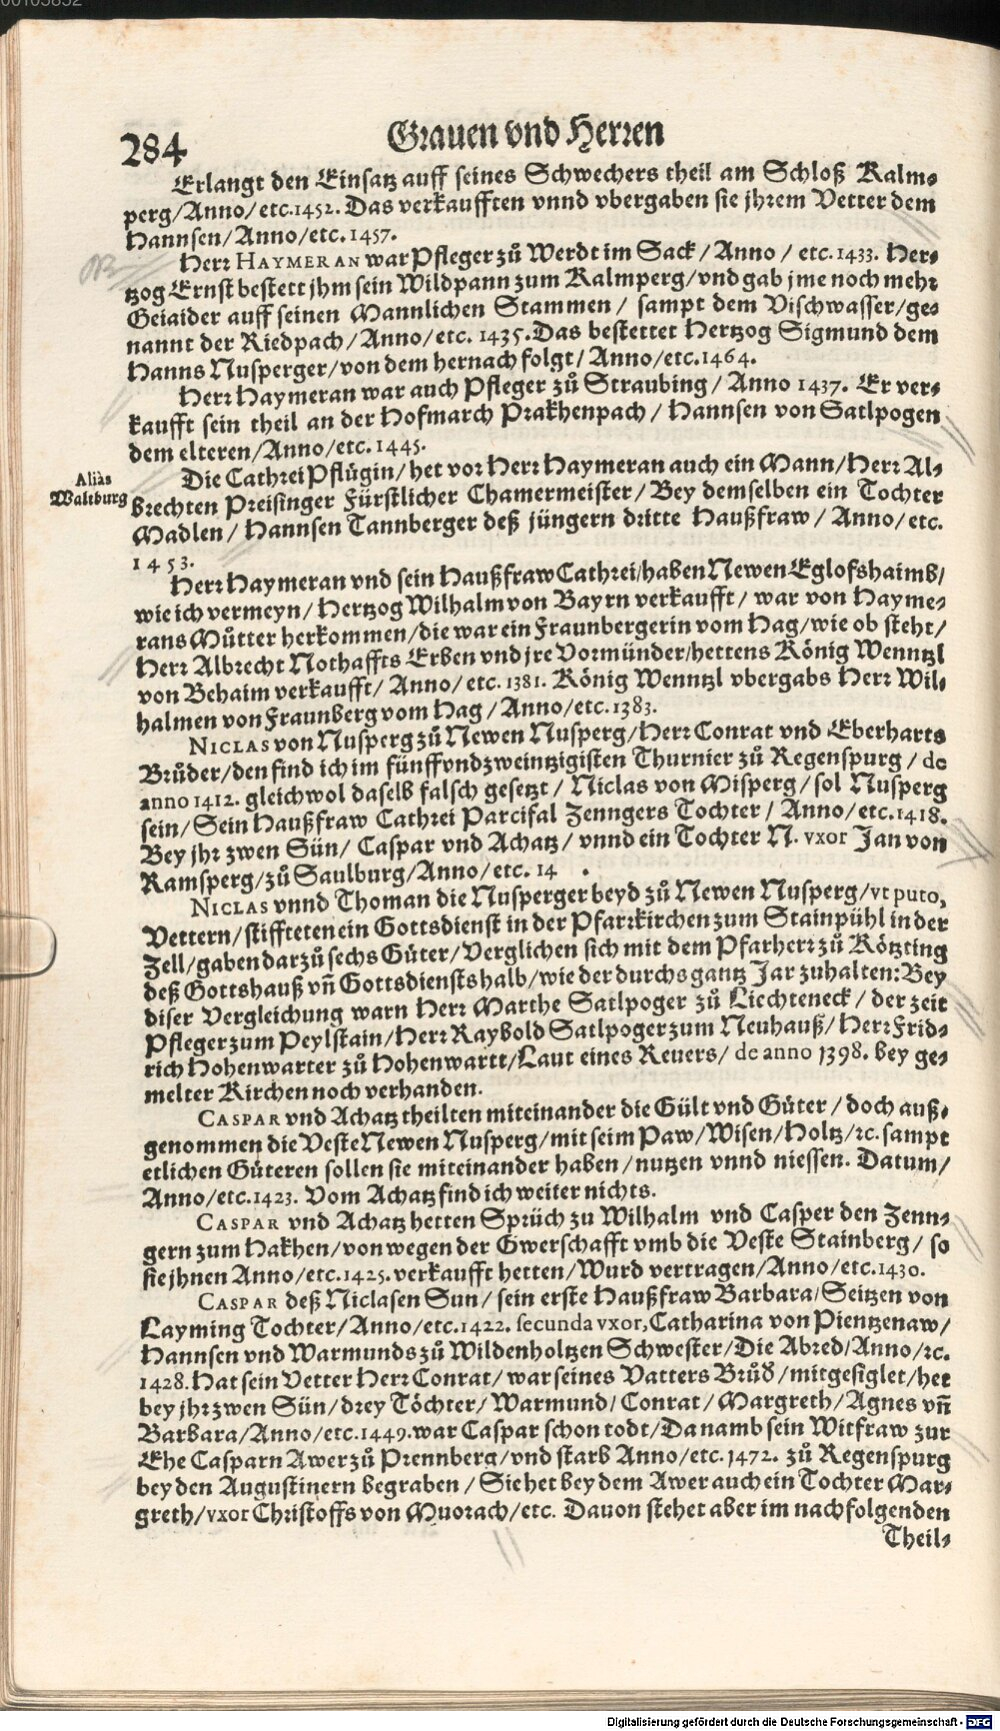 00105852
284
Grauen vnd Herren
Erlangt den Einsatz auff seines Schwechers theil am Schloß Kalm-
perg/Anno/etc.1452. Das verkaufften vnnd vbergaben sie jhrem Vetter dem
Hannsen/Anno/etc.1457.
Herr HAYMERAN war Pfleger zů Werdt im Sack/Anno/etc.1433. Her-
tzog Ernst bestett jhm sein Wildpann zum Kalmperg/vnd gab jme noch mehr
Geiaider auff seinen Mannlichen Stammen/ sampt dem Vischwasser/ge-
nannt der Riedpach/Anno/etc. 1435. Das bestettet Hertzog Sigmund dem
Hanns Nusperger/von dem hernach folgt/Anno/etc.1464.
Herr Haymeran war auch Pfleger zů Straubing/Anno 1437. Er ver-
kaufft sein theil an der Hofmarch Prakhenpach/Hannsen von Satlpogen
dem elteren/Anno/etc.1445.
Die Cathrei Pflůgin/het vor Herr Haymeran auch ein Mann/Herr Al-
Aliàs
Waltburg
brechten Preisinger Fürstlicher Chamermeister/Bey demselben ein Tochter
Madlen/Hannsen Tannberger deß jüngern dritte Haußfraw/Anno/etc.
1453.
Herr Haymeran vnd sein Haußfraw Cathrei/haben Newen Eglofshaimb/
wie ich vermeyn/Hertzog Wilhalm von Bayrn verkaufft/war von Hayme-
rans Můtter herkommen/die war ein Fraunbergerin vom Hag/wie ob steht/
Herr Albrecht Nothaffts Erben vnd jre Vormünder/hettens König Wenntzl
von Behaim verkaufft/Anno/etc.1381. König Wenntzl vbergabs Herr Wil-
halmen von Fraunberg vom Hag/Anno/etc.1383.
NICLAS von Nusperg zů Newen Nusperg/Herr Conrat vnd Eberharts
Brůder/den find ich im fünffvndzweintzigisten Thurnier zů Regenspurg/de
anno 1412. gleichwol daselb falsch gesetzt/Niclas von Misperg/sol Nusperg
sein/Sein Haußfraw Cathrei Parcifal Zenngers Tochter/Anno/etc.1418.
Bey jhr zwen Sün/Caspar vnd Achatz/vnnd ein Tochter N. vxor Jan von
Ramsperg/zů Saulburg/Anno/etc. 14 .
NICLAS vnnd Thoman die Nusperger beyd zů Newen Nusperg/vt puto,
Vettern/stiffteten ein Gottsdienst in der Pfarrkirchen zum Stainpühl in der
Zell/gaben darzů sechs Güter/Verglichen sich mit dem Pfarherr zů Kötzting
deß Gottshauß vñ Gottsdiensts halb/wie der durchs gantz Jar zuhalten: Bey
diser Vergleichung warn Herr Marthe Satlpoger zů Liechteneck/der zeit
Pfleger zum Peylstain/Herr Raybold Satlpoger zum Neuhauß/Herr Frid-
rich Hohenwarter zů Hohenwartt/Laut eines Reuers/de anno 1398. bey ge-
melter Kirchen noch verhanden.
CASPAR vnd Achatz theilten miteinander die Gült vnd Güter/doch auß-
genommen die Veste Newen Nusperg/mit seim Paw/Wisen/Holtz/ꝛc. sampt
etlichen Güteren sollen sie miteinander haben/nutzen vnnd niessen. Datum/
Anno/etc.1423. Vom Achatz find ich weiter nichts.
CASPAR vnd Achatz hetten Sprüch zu Wilhalm vnd Casper den Zenn-
gern zum Hakhen/von wegen der Gwerschafft vmb die Veste Stainberg/so
sie jhnen Anno/etc.1425. verkaufft hetten/Wurd vertragen/Anno/etc.1430.
CASPAR deß Niclasen Sun/sein erste Haußfraw Barbara/Seitzen von
Layming Tochter/Anno/etc.1422. secunda vxor, Catharina von Pientzenaw/
Hannsen vnd Warmunds zů Wildenholtzen Schwester/Die Abred/Anno/ꝛc.
1428. Hat sein Vetter Herr Conrat/war seines Vatters Brůd/mitgesiglet/het
bey jhr zwen Sün/drey Töchter/Warmund/Conrat/Margreth/Agnes vñ
Barbara/Anno/etc.1449. war Caspar schon todt/Da namb sein Witfraw zur
Ehe Casparn Awer zů Prennberg/vnd starb Anno/etc.1472. zů Regenspurg
bey den Augustinern begraben/Sie het bey dem Awer auch ein Tochter Mar-
greth/vxor Christoffs von Muorach/etc. Dauon stehet aber im nachfolgenden
Theil-
Digitalisierung gefördert durch die Deutsche Forschungsgemeinschaft - DFG